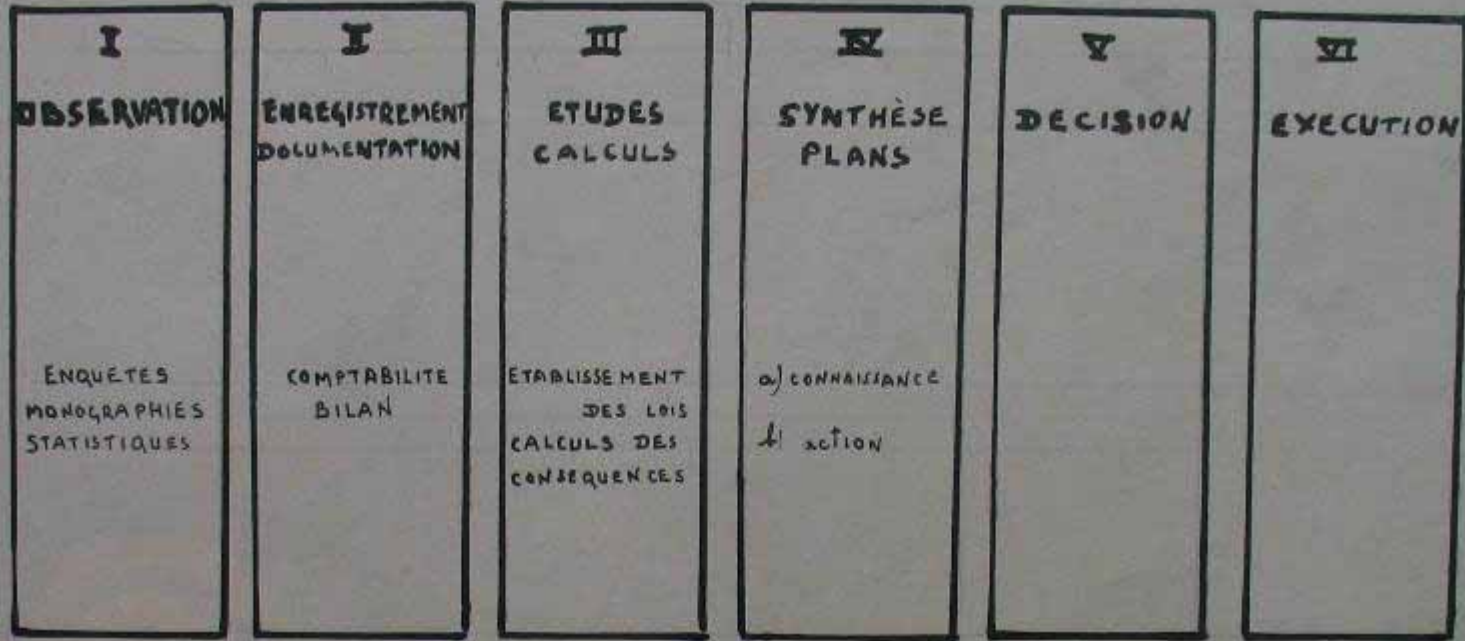 I
OBSERVATION
ENQUETES
MONOGRAPHIES
STATISTIQUES
II
ENREGISTREMENT
DOCUMENTATION
COMPTABILITE
BILAN
III
ETUDES
CALCULS
ETABLISSEMENT
DES LOIS
CALCULS DES
CONSEQUENCES
IV
SYNTHÈSE
PLANS
a) CONNAISSANCE
b) action
V
DECISION
VI
EXECUTION